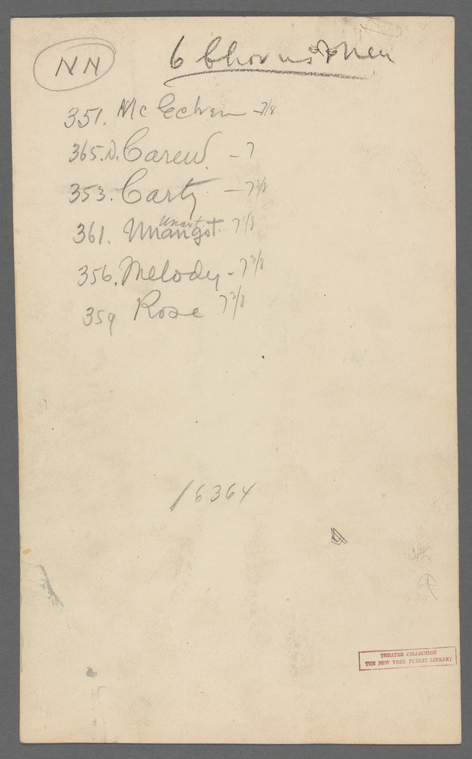 NN
6 Chorus Men
351. McEchern - 7/8
365. D. Carew. - 7
353. Carty - 7 3/8
361. Mangot. 7 1/8
356. Melody - 7 3/8
359 Rose 7 3/8
16364
THEATRE COLLECTION
THE NEW YORK PUBLIC LIBRARY